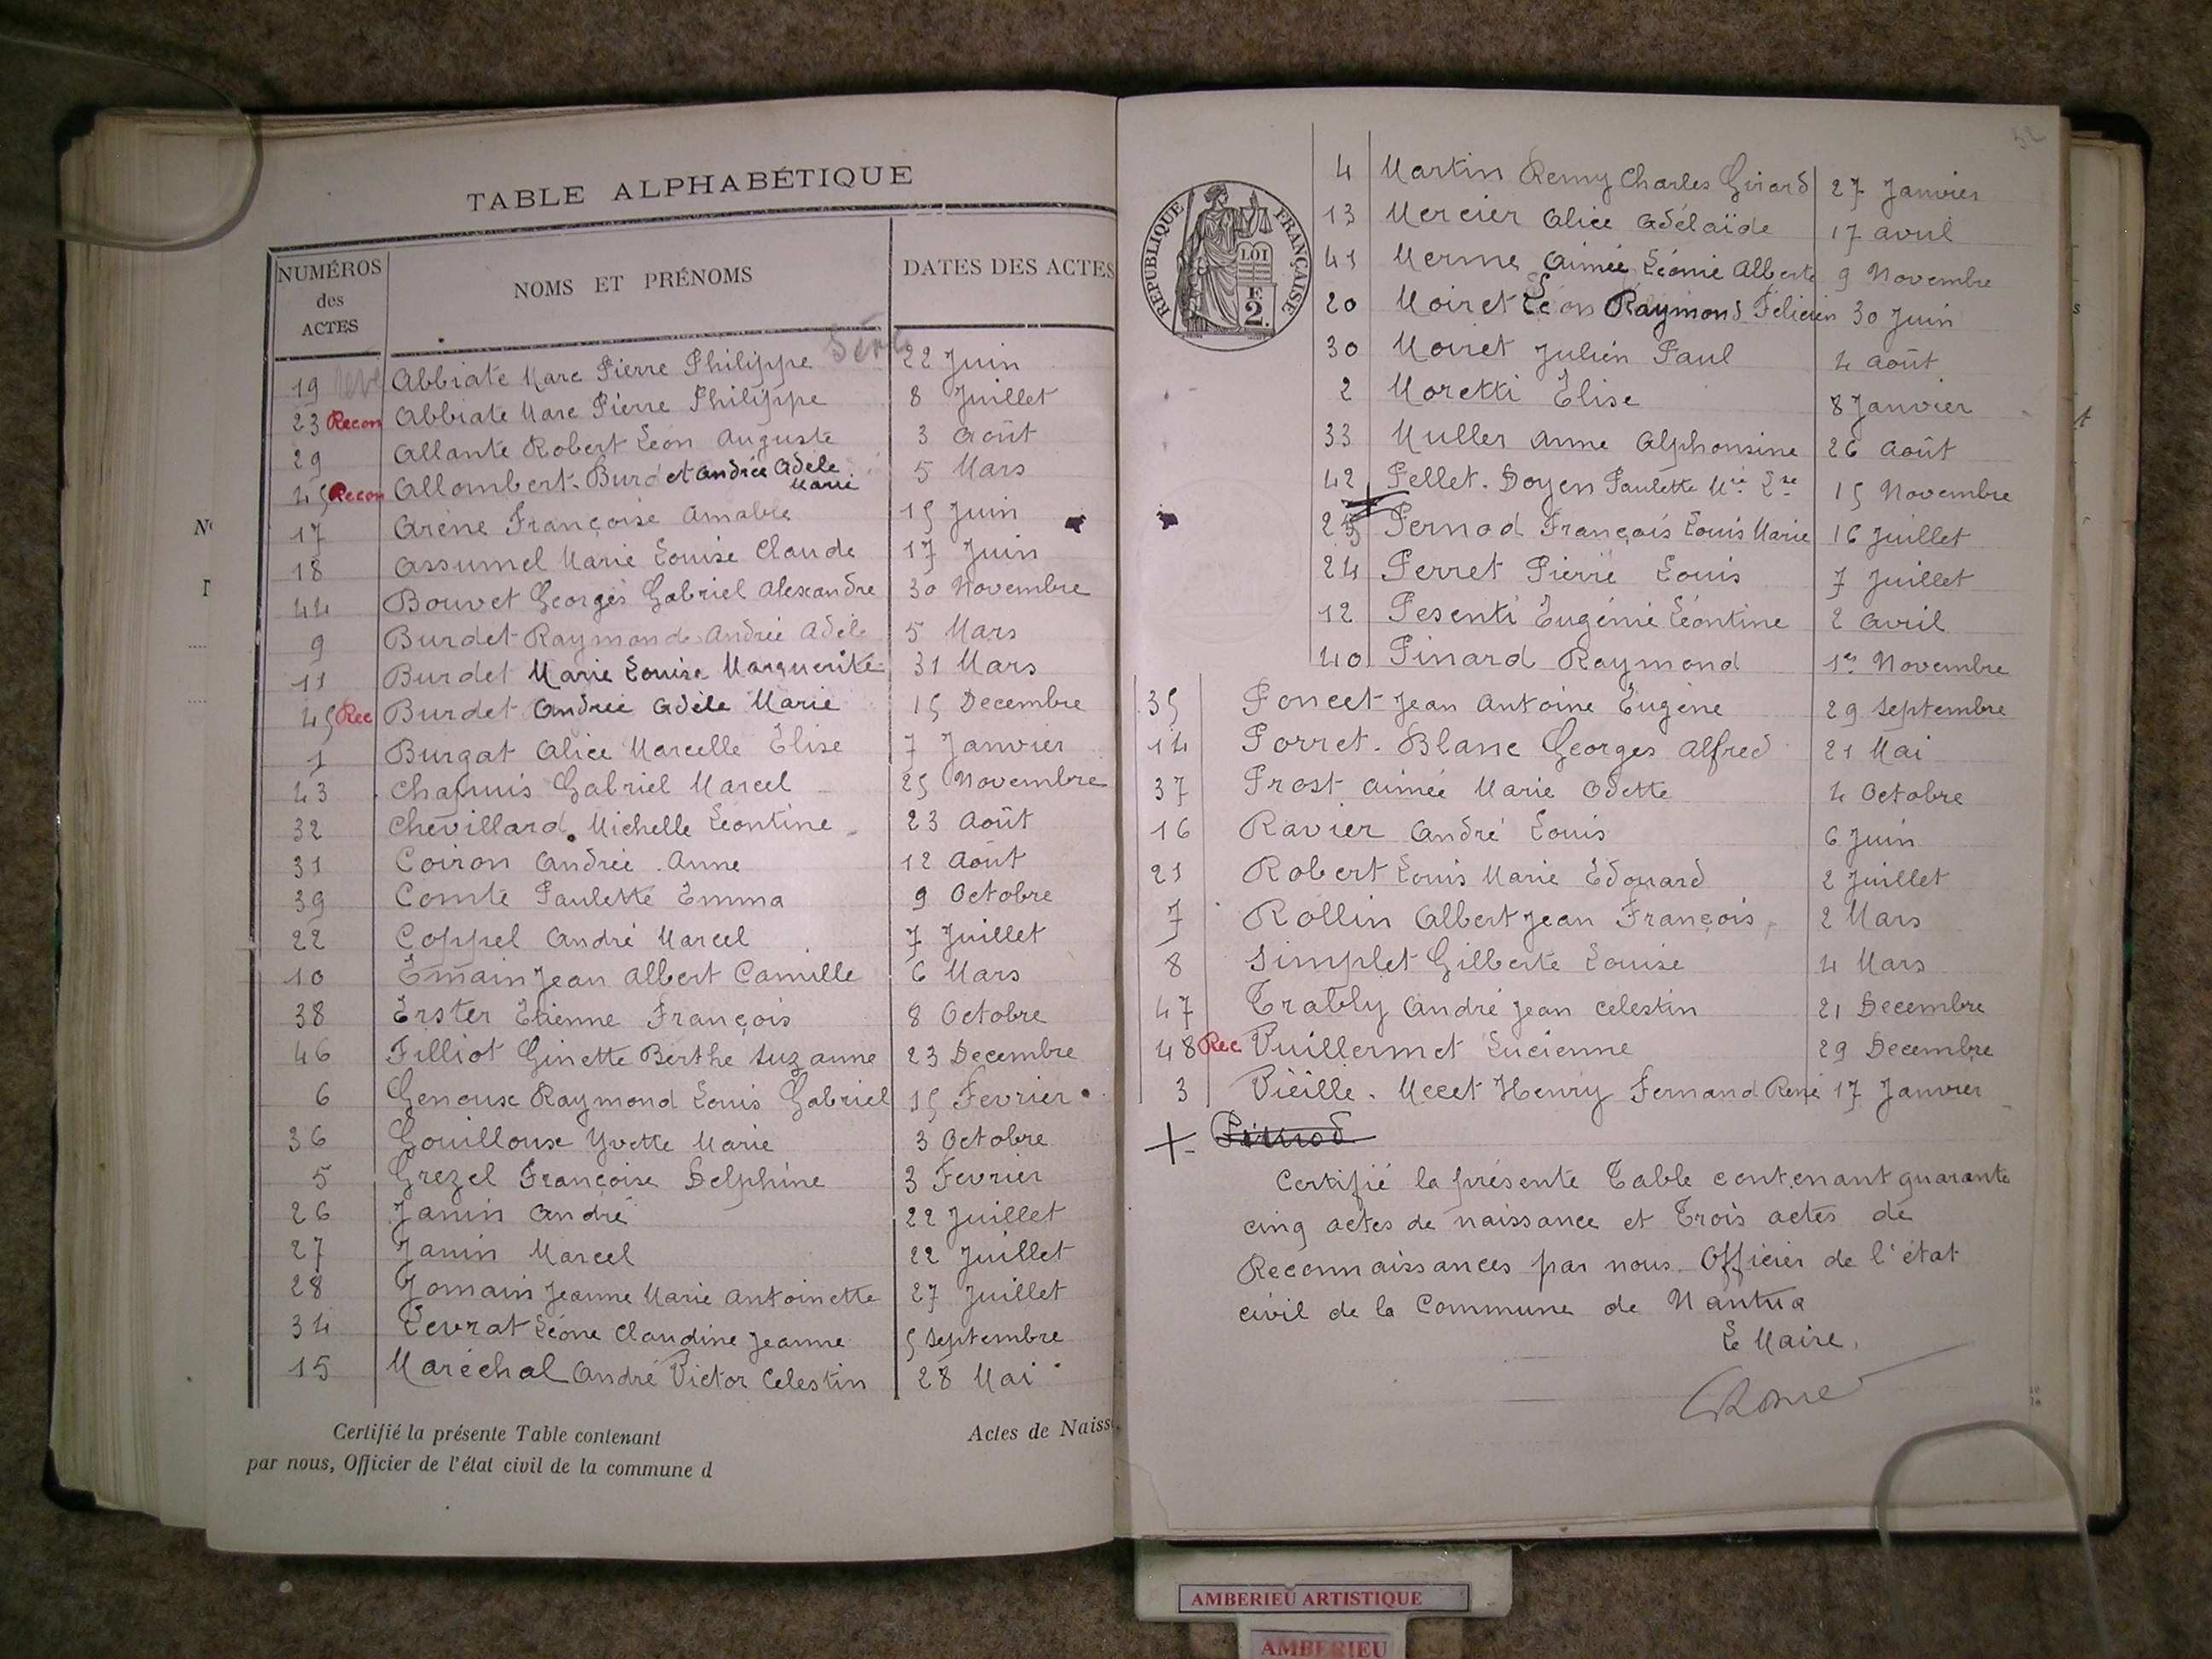 TABLE ALPHABÉTIQUE
NUMÉROS des ACTES NOMS ET PRÉNOMS DATES DES ACTES
19 Abbiate Marc Pierre Philippe 22 Juin
23 Recon Abbiate Marc Pierre Philippe 8 Juillet
29 Allante Robert Léon Auguste 3 Août
45 Recon Allombert-Burdet Andrée Adèle Marie 5 Mars
17 Arène Françoise Amable 15 Juin
18 Assumel Marie Louise Claude 17 Juin
44 Bouvet Georges Gabriel Alexandre 30 Novembre
9 Burdet Raymonde Andrée Adèle 5 Mars
11 Burdet Marie Louise Marguerite 31 Mars
45 Rec Burdet Andrée Adèle Marie 15 Decembre
1 Burgat Alice Marcelle Élise 7 Janvier
43 Chapuis Gabriel Marcel 25 Novembre
32 Chevillard Michelle Léontine 23 Août
31 Coiron Andrée Anne 12 Août
39 Comte Paulette Emma 9 Octobre
22 Coppel André Marcel 7 Juillet
10 Emain Jean Albert Camille 6 Mars
38 Erster Etienne François 8 Octobre
46 Filliot Ginette Berthe Suzanne 23 Decembre
6 Genoux Raymond Louis Gabriel 15 Fevrier
36 Gouilloux Yvette Marie 3 Octobre
5 Grezel Françoise Delphine 3 Fevrier
26 Janin André 22 Juillet
27 Janin Marcel 22 Juillet
28 Jomain Jeanne Marie Antoinette 27 Juillet
34 Levrat Léone Claudine Jeanne 5 Septembre
15 Maréchal André Victor Celestin 28 Mai
Certifié la présente Table contenant Actes de Naiss
par nous, Officier de l'état civil de la commune d
RÉPUBLIQUE FRANÇAISE
LOI
F
2.
4 Martin Remy Charles Girard 27 Janvier
13 Mercier Alice Adélaïde 17 Avril
41 Merme Aimée Léonie Alberte 9 Novembre
20 Moiret Léon Raymond Félicien 30 Juin
30 Moiret Julien Paul 4 Août
2 Moretti Élise 8 Janvier
33 Muller Anne Alphonsine 26 Août
42 Pellet-Doyen Paulette Mie Lse 15 Novembre
25 Pernod François Louis Marie 16 Juillet
24 Perret Pierre Louis 7 Juillet
12 Pesenti Eugénie Léontine 2 Avril
40 Pinard Raymond 1er Novembre
35 Poncet Jean Antoine Eugène 29 Septembre
14 Porret-Blanc Georges Alfred 21 Mai
37 Prost Aimée Marie Odette 4 Octobre
16 Ravier André Louis 6 Juin
21 Robert Louis Marie Edouard 2 Juillet
7 Rollin Albert Jean François 2 Mars
8 Simplet Gilberte Louise 4 Mars
47 Trably André Jean Celestin 21 Decembre
48 Rec Vuillermet Lucienne 29 Decembre
3 Vieille-Mecet Henry Fernand René 17 Janvier
Certifié la présente Table contenant quarante
cinq actes de naissance et Trois actes de
Reconnaissances par nous Officier de l'état
civil de la Commune de Nantua
Le Maire,
AMBERIEU ARTISTIQUE
AMBERIEU